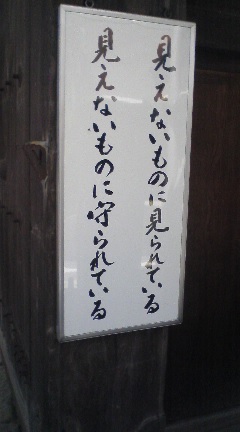 見えないものに見られている
見えないものに守られている